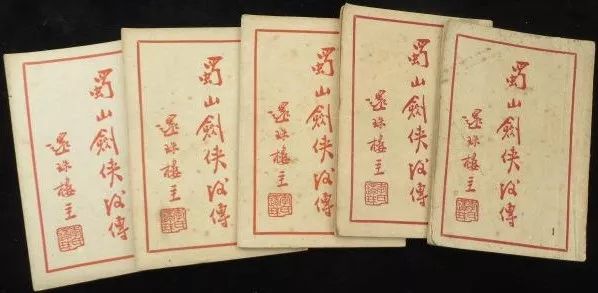 蜀山劍侠後傳
還珠樓主
蜀山劍侠後傳
還珠樓主
蜀山劍侠後傳
還珠樓主
蜀山劍侠後傳
還珠樓主
蜀山劍侠後傳
還珠樓主
1